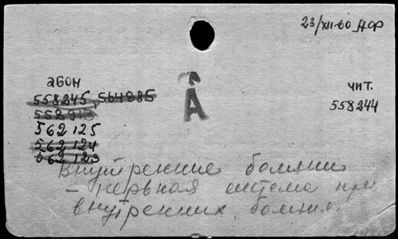 23/XII-60 ДФ
абон
558245, 564285
552913
562125
562124
562123
А
чит.
558244
Внутренние болезни
- нервная система при
внутренних болезня.